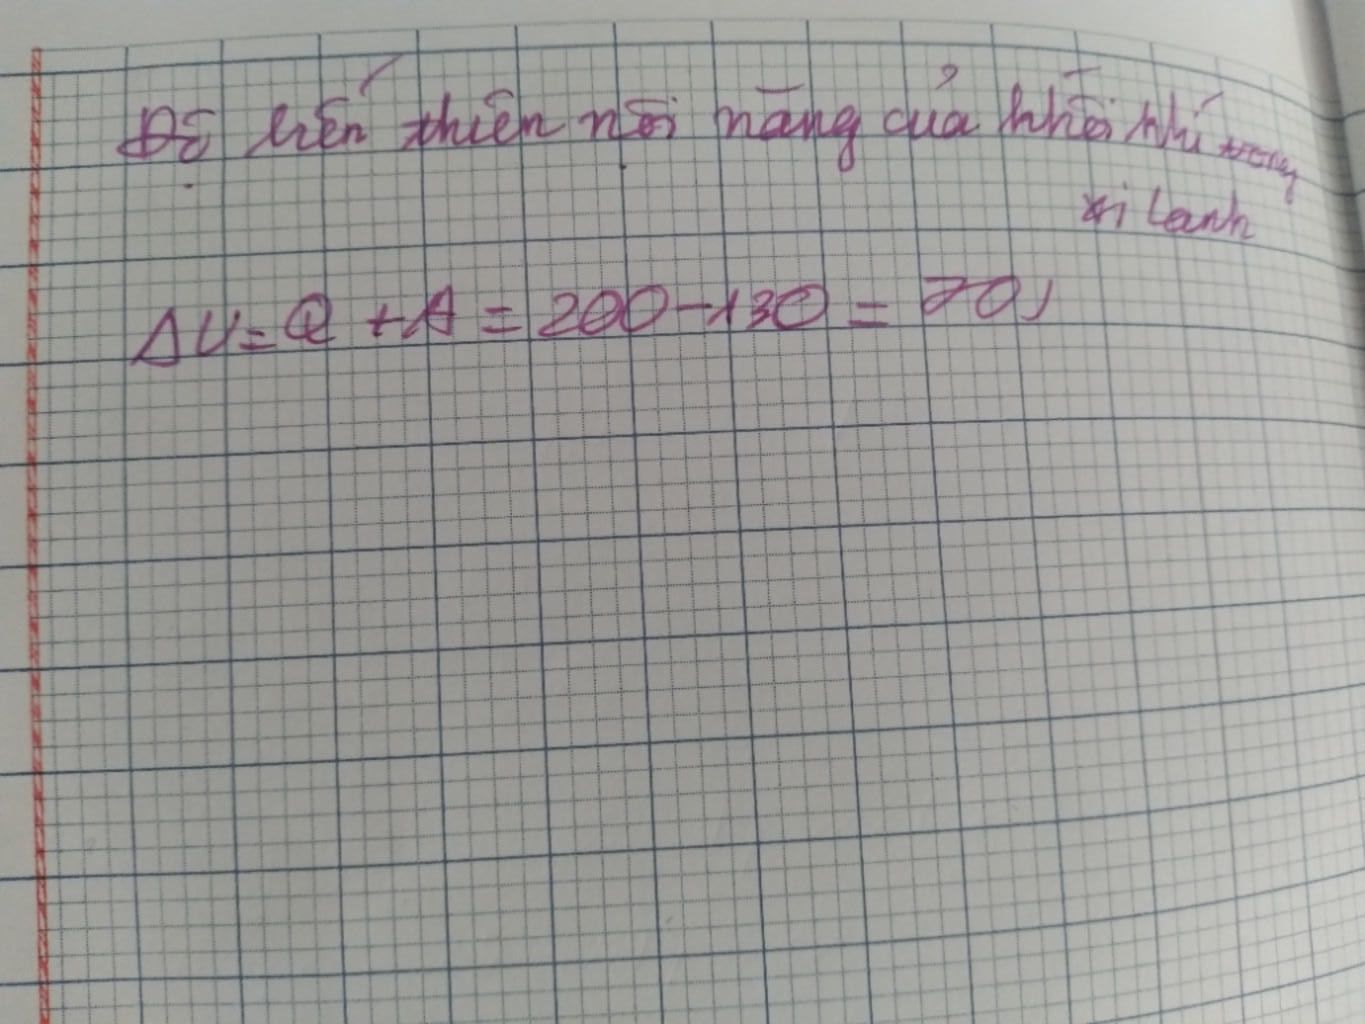 Độ biến thiên nội năng của khối khí trong
xi lanh
ΔU = Q + A = 200 - 130 = 70J